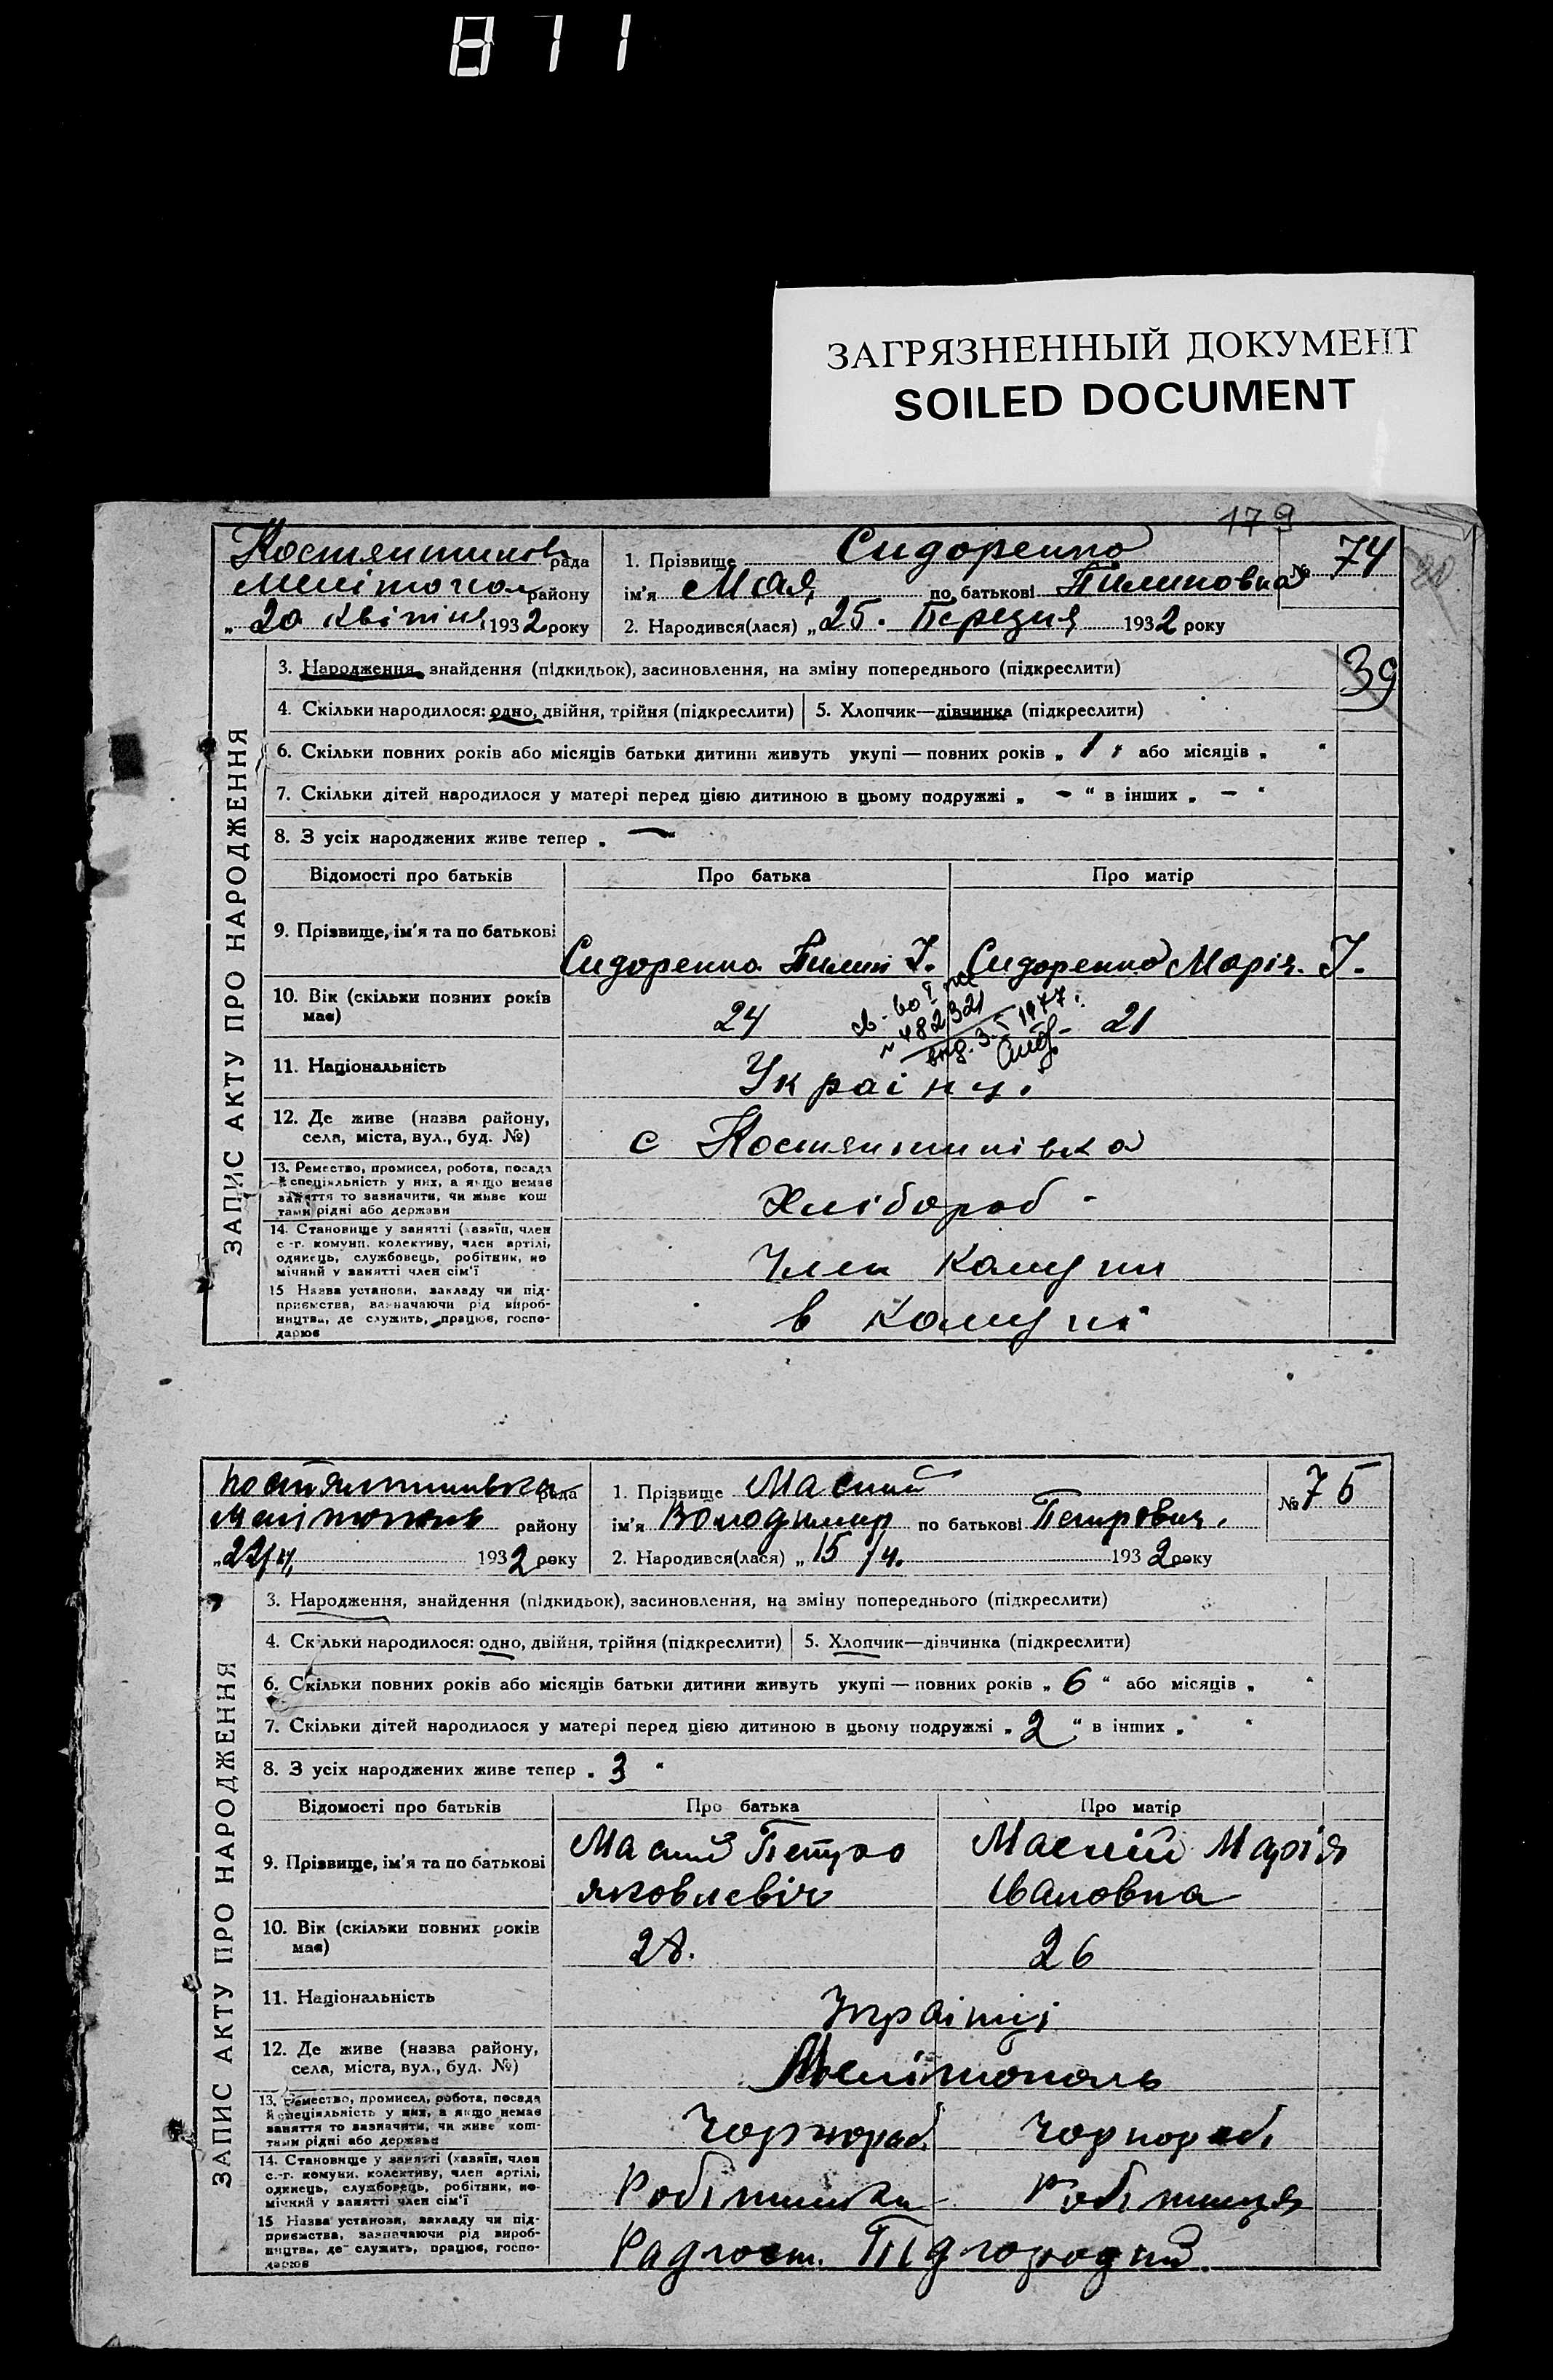 871
ЗАГРЯЗНЕННЫЙ ДОКУМЕНТ
SOILED DOCUMENT
179
Костянтинов рада
Мелітопол району
„20 Квітня 1932 року
1. Прізвище Сидоренко
ім'я Мая по батькові Пилиповна
2. Народився(лася) „25. Березня 1932 року
№ 74
ЗАПИС АКТУ ПРО НАРОДЖЕННЯ
3. Народження, знайдення (підкидьок), засиновлення, на зміну попереднього (підкреслити)
39
4. Скільки народилося: одно, двійня, трійня (підкреслити) 5. Хлопчик—дівчинка (підкреслити)
6. Скільки повних років або місяців батьки дитини живуть укупі — повних років „ 1 " або місяців „ "
7. Скільки дітей народилося у матері перед цією дитиною в цьому подружжі „ – " в інших „ – "
8. З усіх народжених живе тепер „ —
Відомості про батьків Про батька Про матір
9. Прізвище, ім'я та по батькові
Сидоренко Пилип І. Сидоренко Марія І.
10. Вік (скільки повних років має)
24 21
св-во
№ 482321
выд. 3.5 1977
11. Національність
Украінці
12. Де живе (назва району,
села, міста, вул., буд. №)
с Костянтинівка
13. Ремество, промисел, робота, посада
й спеціяльність у них, а якщо немає
заняття то зазначити, чи живе кош
тами рідні або держави
Хлібороб -
14. Становище у занятті (хазяїн, член
с.-г. комуни. колективу, член артілі,
одинець, службовець, робітник, по
мічний у занятті член сім'ї
Член Комуни
15 Назва установи, закладу чи під-
приємства, зазначаючи рід вироб-
ництва, де служить, працює, госпо-
дарює
в Комуні
Костянтинівська рада
Мелітополь району
„22/4, 1932 року
1. Прізвище Масний
ім'я Володимир по батькові Петрович.
2. Народився(лася) „15/4. 1932 року
№ 75
ЗАПИС АКТУ ПРО НАРОДЖЕННЯ
3. Народження, знайдення (підкидьок), засиновлення, на зміну попереднього (підкреслити)
4. Скільки народилося: одно, двійня, трійня (підкреслити) 5. Хлопчик—дівчинка (підкреслити)
6. Скільки повних років або місяців батьки дитини живуть укупі — повних років „ 6 " або місяців „ "
7. Скільки дітей народилося у матері перед цією дитиною в цьому подружжі „ 2 " в інших „ "
8. З усіх народжених живе тепер „ 3 "
Відомості про батьків Про батька Про матір
9. Прізвище, ім'я та по батькові
Масний Петро Масній Марія
яковлевіч Івановна
10. Вік (скільки повних років має)
28. 26
11. Національність
Українці
12. Де живе (назва району,
села, міста, вул., буд. №)
Мелітополь
13. Ремество, промисел, робота, посада
й спеціяльність у них, а якщо немає
заняття то зазначити, чи живе кош-
тами рідні або держави
Чорнороб. Чорнороб.
14. Становище у занятті (хазяїн, член
с.-г. комуни. колективу, член артілі,
одинець, службовець, робітник, по-
мічний у занятті член сім'ї
Робітника Робітниця
15 Назва установи, закладу чи під-
приємства, зазначаючи рід вироб-
ництва, де служить, працює, госпо-
дарює
Радгосп. Підгородній.